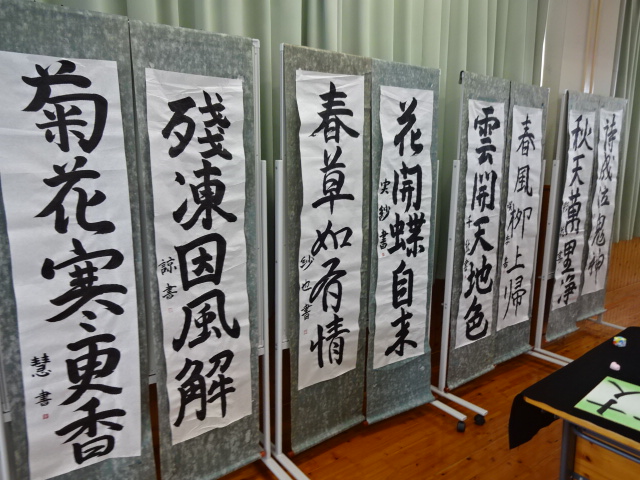 菊花寒更香
慧書
残凍因風解
諒書
春草如有情
紗也書
花開蝶自来
実鈴書
雲開天地色
春風柳上帰
秋天萬里浄
詩成泣鬼神